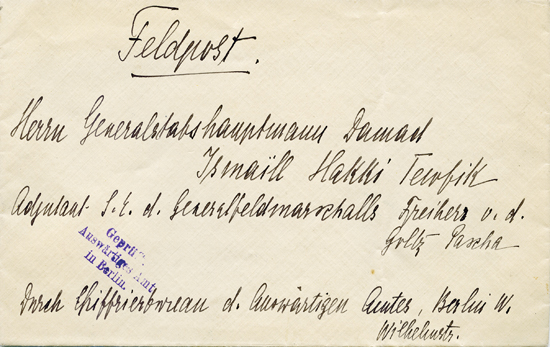 Feldpost.
Herrn Generalstabshauptmann Damad
Ismaill Hakki Tewfik
Adjutant S. E. d. Generalfeldmarschalls Freiherr v. d.
Goltz Pascha
Geprüft
Auswärtiges Amt
in Berlin.
Durch Chiffrierbureau d. Auswärtigen Amtes, Berlin W.
Wilhelmstr.